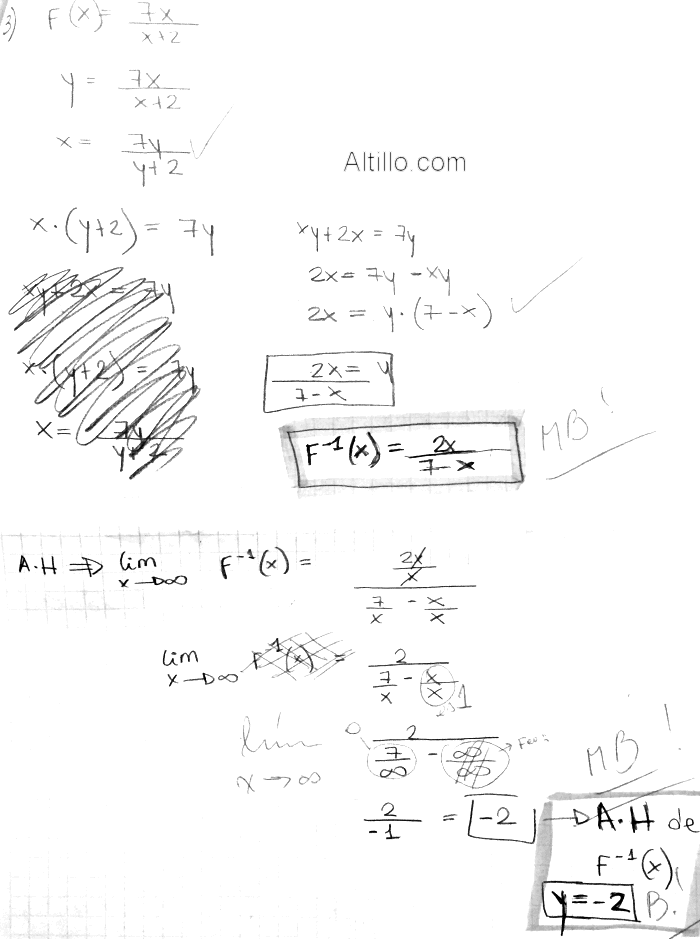 3) F(x) = 7x / x+2
y = 7x / x+2
x = 7y / y+2
Altillo.com
x·(y+2) = 7y
xy+2x = 7y
2x = 7y - xy
2x = y·(7-x)
2x / 7-x = y
F⁻¹(x) = 2x / 7-x
MB!
xy+2x = 7y
x·(y+2) = 7y
x = 7y / y+2
A.H ⇒ lim x→∞ F⁻¹(x) = 2x/x / 7/x - x/x
lim x→∞ F⁻¹(x) = 2 / 7/x - x/x
es 1
lím x→∞ 2 / 7/∞ - ∞/∞
0
MB!
2 / -1 = -2 → A.H de
F⁻¹(x)
y = -2
B.